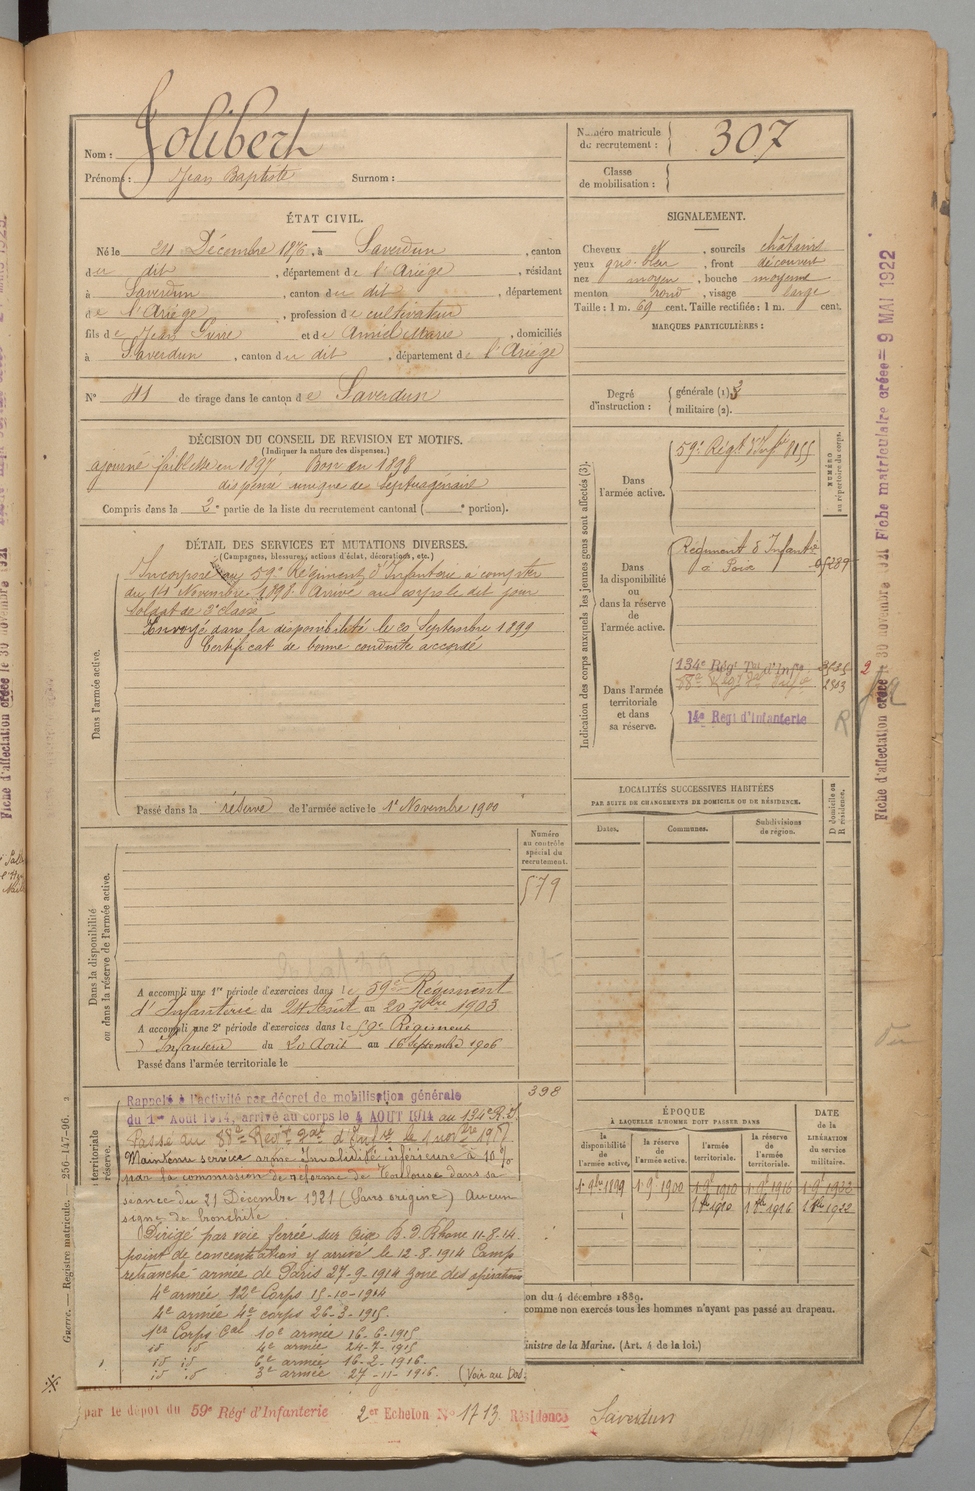 Nom : Jolibert
Prénoms : Jean Baptiste Surnom :
Numéro matricule du recrutement : 307
Classe de mobilisation :
ÉTAT CIVIL.
Né le 24 Décembre 1876, à Saverdun, canton
du dit, département de l'Ariège, résidant
à Saverdun, canton du dit, département
de l'Ariège, profession de cultivateur
fils de Jean Pierre et de Amiel Marie, domiciliés
à Saverdun, canton du dit, département de l'Ariège
N° 41 de tirage dans le canton de Saverdun
SIGNALEMENT.
Cheveux N, sourcils châtains
yeux gris-bleu, front découvert
nez moyen, bouche moyenne
menton rond, visage large
Taille : 1 m. 69 cent. Taille rectifiée : 1 m. cent.
MARQUES PARTICULIÈRES :
Degré d'instruction : générale (1) 3
militaire (2).
DÉCISION DU CONSEIL DE REVISION ET MOTIFS.
(Indiquer la nature des dispenses.)
ajourné faiblesse en 1897. Bon en 1898
dispensé unique de septuagénaire
Compris dans la 2e partie de la liste du recrutement cantonal ( e portion).
DÉTAIL DES SERVICES ET MUTATIONS DIVERSES.
(Campagnes, blessures, actions d'éclat, décorations, etc.)
Dans l'armée active.
Incorporé au 59e Régiment d'Infanterie à compter
du 14 Novembre 1898. Arrivé au corps le dit jour
soldat de 2e classe
Envoyé dans la disponibilité le 20 Septembre 1899
Certificat de bonne conduite accordé
Passé dans la réserve de l'armée active le 1er Novembre 1900
Indication des corps auxquels les jeunes gens sont affectés (3).
NUMÉRO au répertoire du corps.
Dans l'armée active.
59e Régt d'Infie 8155
Dans la disponibilité ou dans la réserve de l'armée active.
Régiment d'Infante
à Foix 05289
Dans l'armée territoriale et dans sa réserve.
134e Régt Tal d'Infie
2303
14e Regt d'Infanterie
LOCALITÉS SUCCESSIVES HABITÉES
PAR SUITE DE CHANGEMENTS DE DOMICILE OU DE RÉSIDENCE.
Dates. Communes. Subdivisions de région. D domicile ou R résidence.
Dans la disponibilité ou dans la réserve de l'armée active.
Numéro au contrôle spécial du recrutement.
579
A accompli une 1re période d'exercices dans le 59e Régiment
d'Infanterie du 24 Août au 20 7bre 1903
A accompli une 2e période d'exercices dans le 59e Régiment
d'Infanterie du 20 Août au 16 Septembre 1906
Passé dans l'armée territoriale le
398
territoriale
réserve.
Rappelé à l'activité par décret de mobilisation générale
du 1er Août 1914, arrivé au corps le 4 AOUT 1914 au 134e R.I.
Passé au 88e Régt Tal d'Infie le 1 novbre 1917
Maintenu service armé Invalidité inférieure à 10%
par la commission de réforme de Toulouse dans sa
séance du 21 Décembre 1921 (Sans origine) Aucun
signe de bronchite
Dirigé par voie ferrée sur Aix B. D. Rhône 11-8-14.
point de concentration y arrivé le 12-8-1914 Camp
retranché armée de Paris 27-9-1914 zone des opérations
4e armée 12e Corps 15-10-1914
4e armée 4e corps 26-3-1915.
1er Corps Cal 10e armée 16-6-1915
id id 4e armée 24-7-1915
id id 6e armée 16-2-1916.
id id 3e armée 27-11-1916. (Voir au Dos.
ÉPOQUE
À LAQUELLE L'HOMME DOIT PASSER DANS
la disponibilité de l'armée active.
la réserve de l'armée active.
l'armée territoriale.
la réserve de l'armée territoriale.
DATE DE LA LIBÉRATION du service militaire.
1er 9bre 1899 1er 9 1900 1er 9 1910 1er 9 1916 1er 9 1922
1 8bre 1910 1 8bre 1916 1 8bre 1922
on du 4 décembre 1889.
comme non exercés tous les hommes n'ayant pas passé au drapeau.
inistre de la Marine. (Art. 4 de la loi.)
par le dépôt du 59e Rég' d'Infanterie 2er Echelon N° 1713. Résidence Saverdun
Guerre. — Registre matricule. — 256-147-96.
Fiche d'affectation créée le 30 novembre 1921 Fiche matriculaire créée = 9 MAI 1922
Fiche d'affectation créée le 30 novembre 1921